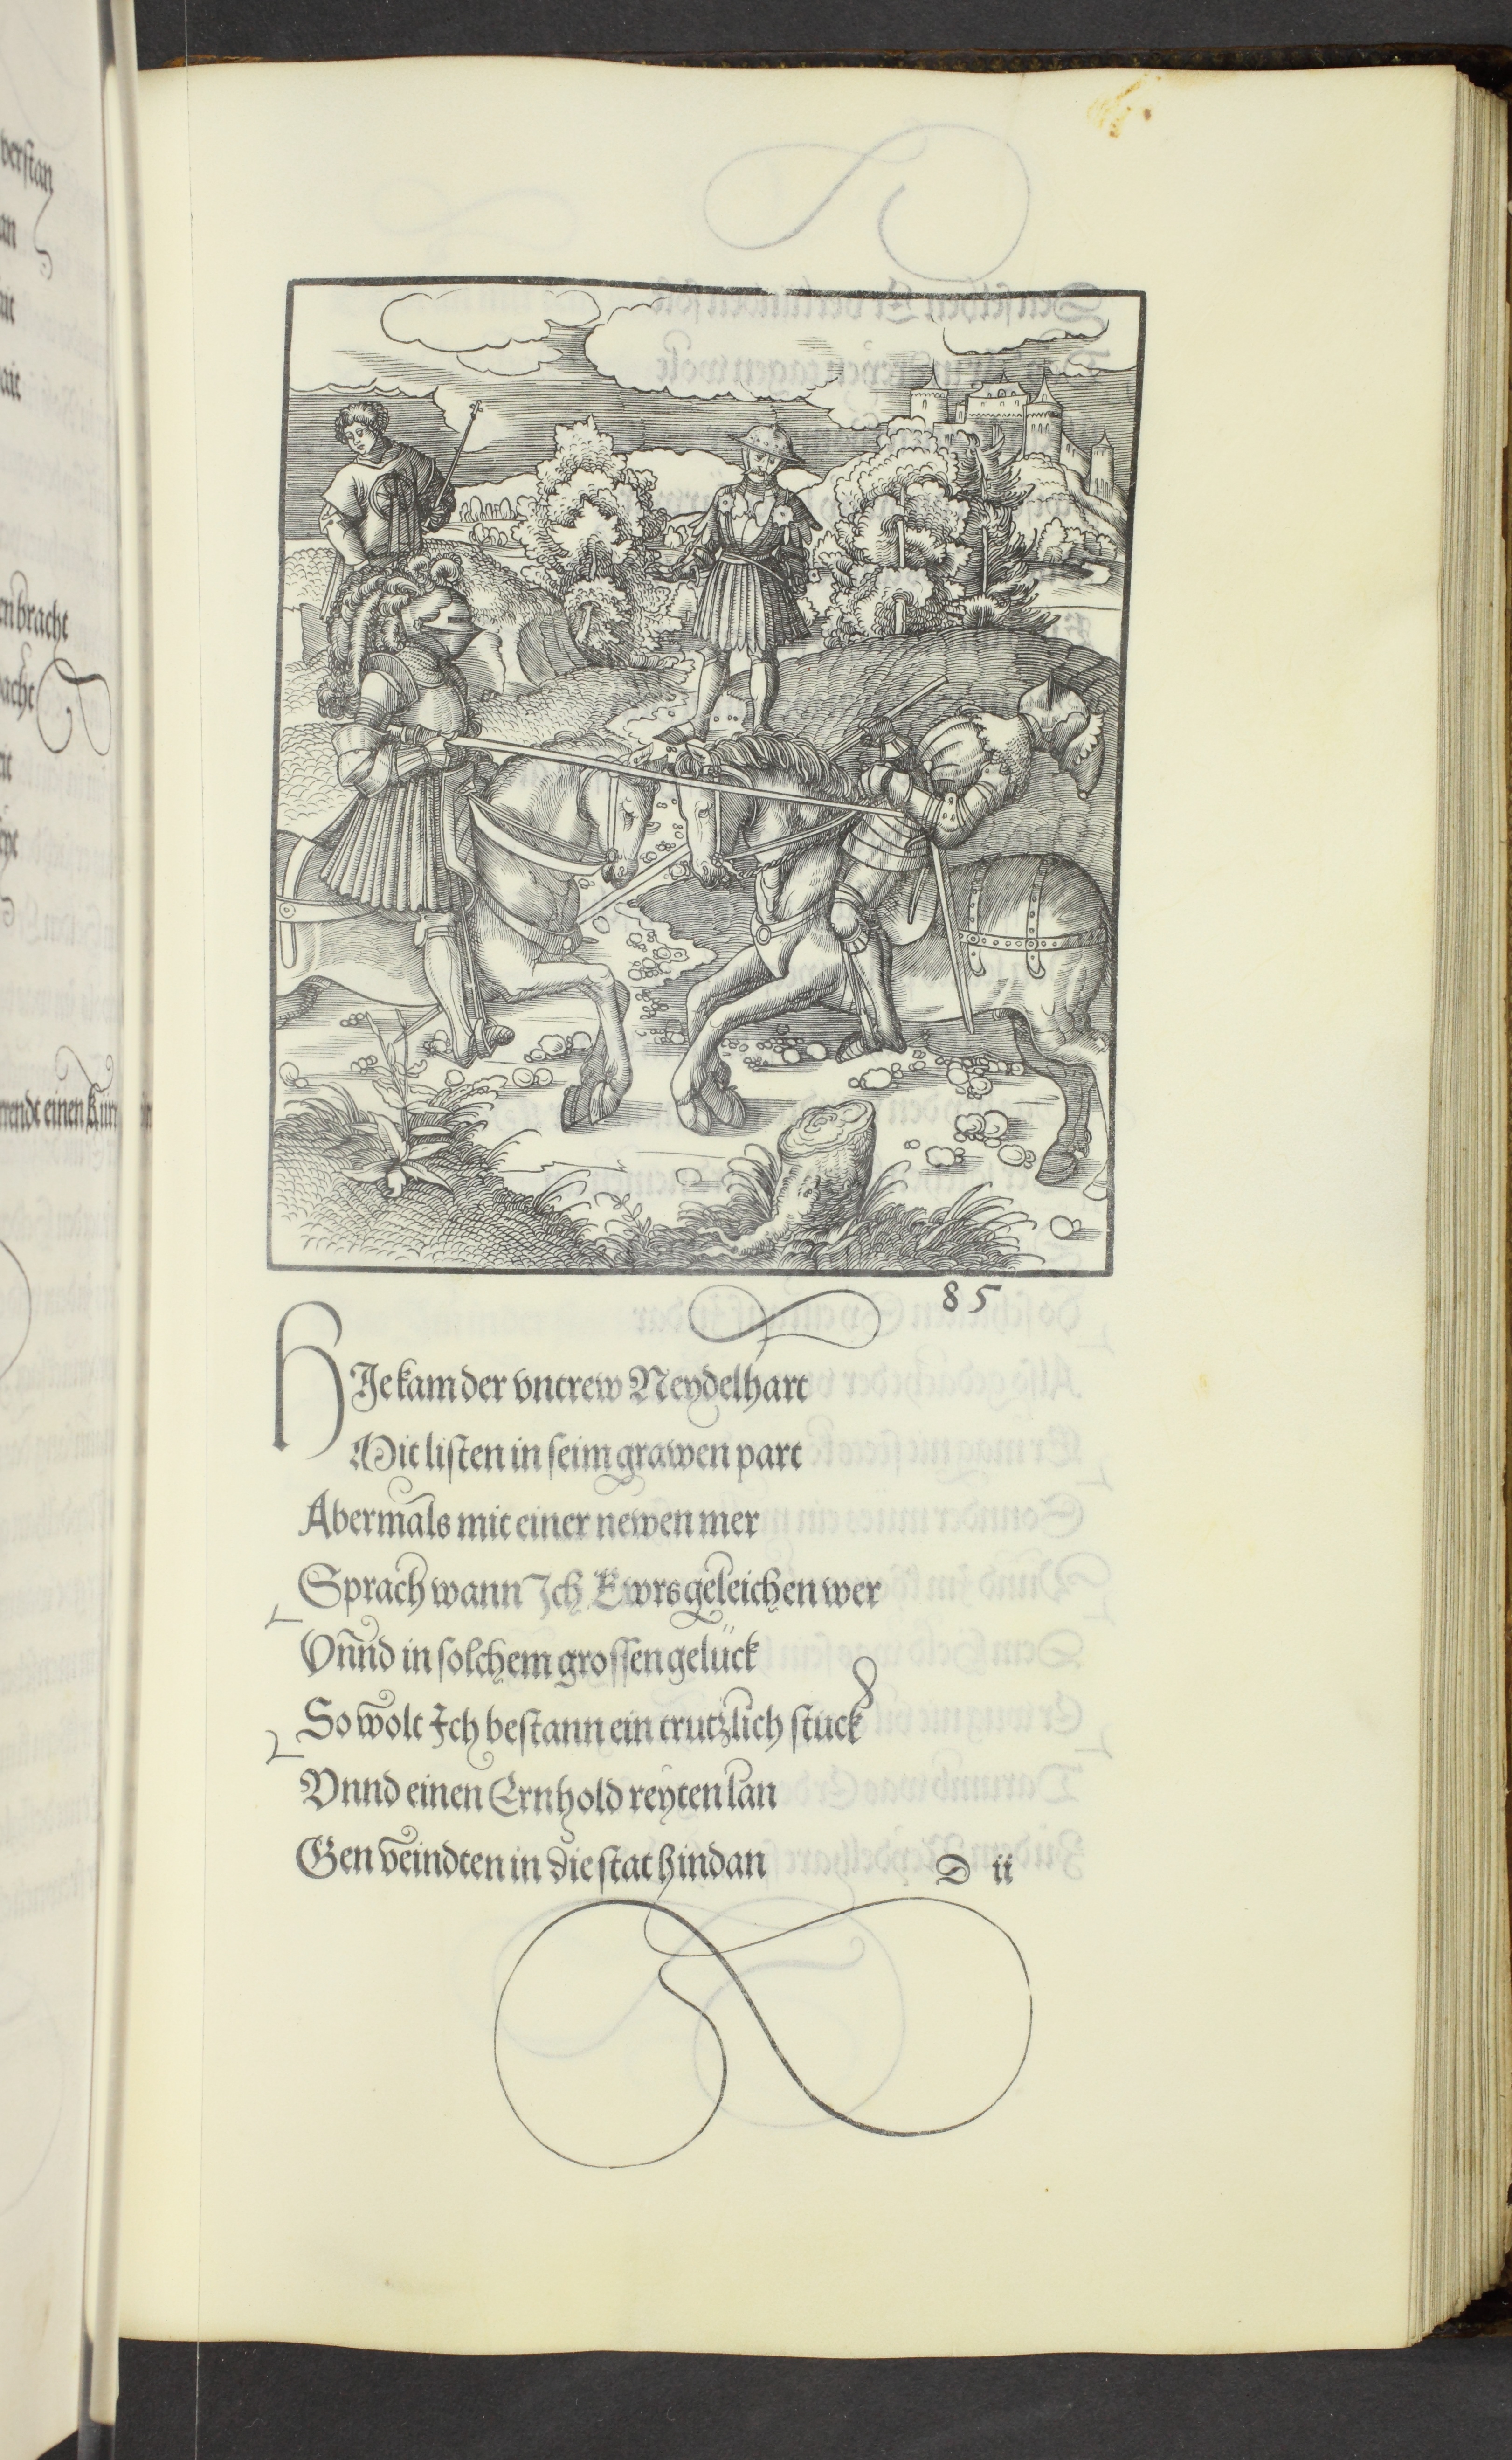 85
HIe kam der vntrew Neydelhart
Mit listen in seim grawen part
Abermals mit einer newen mer
Sprach wann Ich Ewrs geleichen wer
Vnnd in solchem grossen gelück
So wolt Ich bestann ein trutzlich stuck
Vnnd einen Ernhold reyten lan
Gen veindten in die stat hindan
D ii
verstan
enbracht
einen